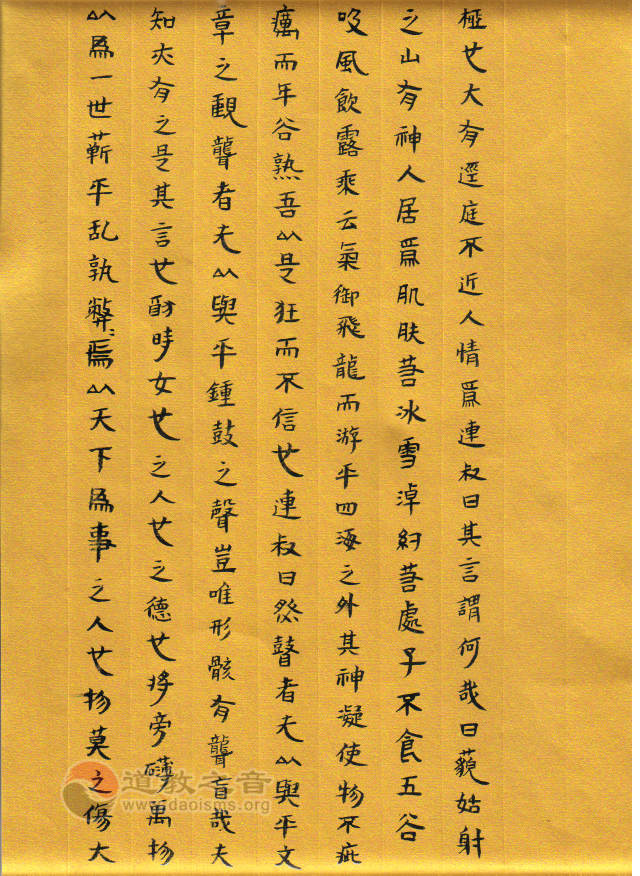 極也大有逕庭不近人情焉連叔曰其言謂何哉曰藐姑射
之山有神人居焉肌肤若冰雪淖約若處子不食五谷
吸風飲露乘云氣御飛龍而游乎四海之外其神凝使物不疵
癘而年谷熟吾以是狂而不信也連叔曰然瞽者无以與乎文
章之觀聾者无以與乎鍾鼓之聲豈唯形骸有聾盲哉夫
知亦有之是其言也猶時女也之人也之德也将旁礴萬物
以爲一世蘄乎乱孰弊〻焉以天下爲事之人也物莫之傷大
道教之音
www.daoisms.org